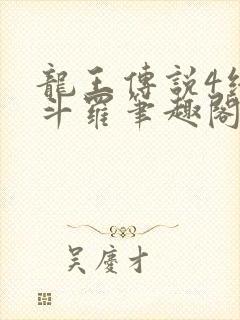 龍王傳説4終
斗羅筆趣閣
吳慶才